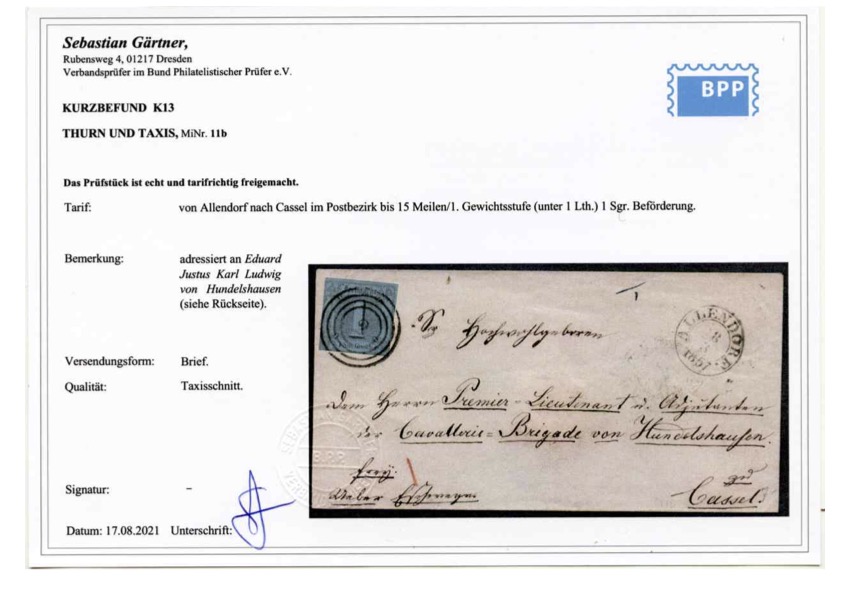 Sebastian Gärtner,
Rubensweg 4, 01217 Dresden
Verbandsprüfer im Bund Philatelistischer Prüfer e.V.
BPP
KURZBEFUND K13
THURN UND TAXIS, MiNr. 11b
Das Prüfstück ist echt und tarifrichtig freigemacht.
Tarif: von Allendorf nach Cassel im Postbezirk bis 15 Meilen/1. Gewichtsstufe (unter 1 Lth.) 1 Sgr. Beförderung.
Bemerkung: adressiert an Eduard
Justus Karl Ludwig
von Hundelshausen
(siehe Rückseite).
Versendungsform: Brief.
Qualität: Taxisschnitt.
Signatur: –
Datum: 17.08.2021 Unterschrift:
1
Sr Hochwohlgeboren
ALLENDORF
8
1857
Dem Herrn Premier-Lieutenant u. Adjutanten
der Cavallerie-Brigade von Hundelshausen.
frey.
Ueber Eschwege
zu
Cassel
B.P.P.